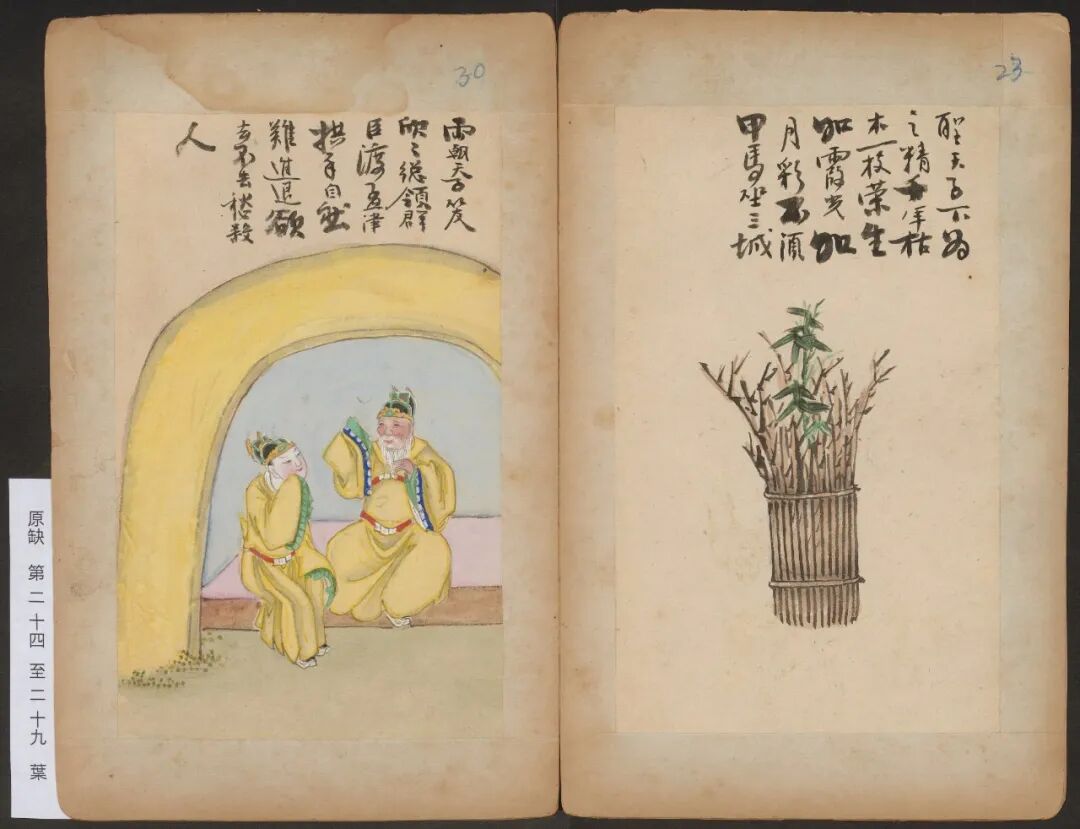 23
聖天子 為
之精千年枯
木一枝榮生
加霞光加
月彩不須
甲馬坐三城
30
兩朝天子笑
欣々総領群
臣渡孟津
拱手自然
難進退欲
去不去愁殺
人
原缺 第二十四至二十九葉